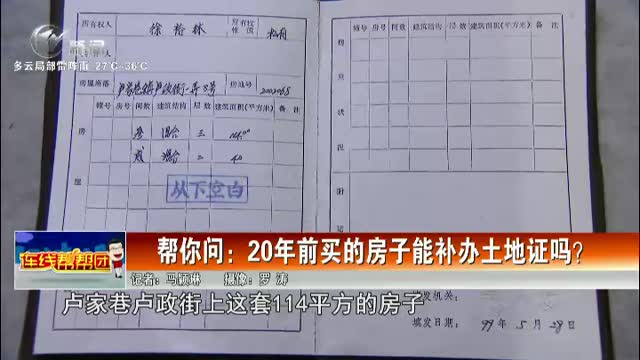 新闻
多云局部雷阵雨 27℃-36℃
所有权人 徐裕林 所有权性质 私有
房屋座落 卢家巷镇卢政街
幢号 房号 间数 建筑结构 层数 建筑面积(平方米) 备注
混合 三
混合 二 40
以下空白
房
幢号 房号 间数 建筑结构 层数 建筑面积(平方米) 备注
房
屋
状
况
附
记
在线帮帮团
帮你问：20年前买的房子能补办土地证吗?
记者：马颖琳 摄像：罗涛
卢家巷卢政街上这套114平方的房子
填发机关：
填发日期： 99年5月28日